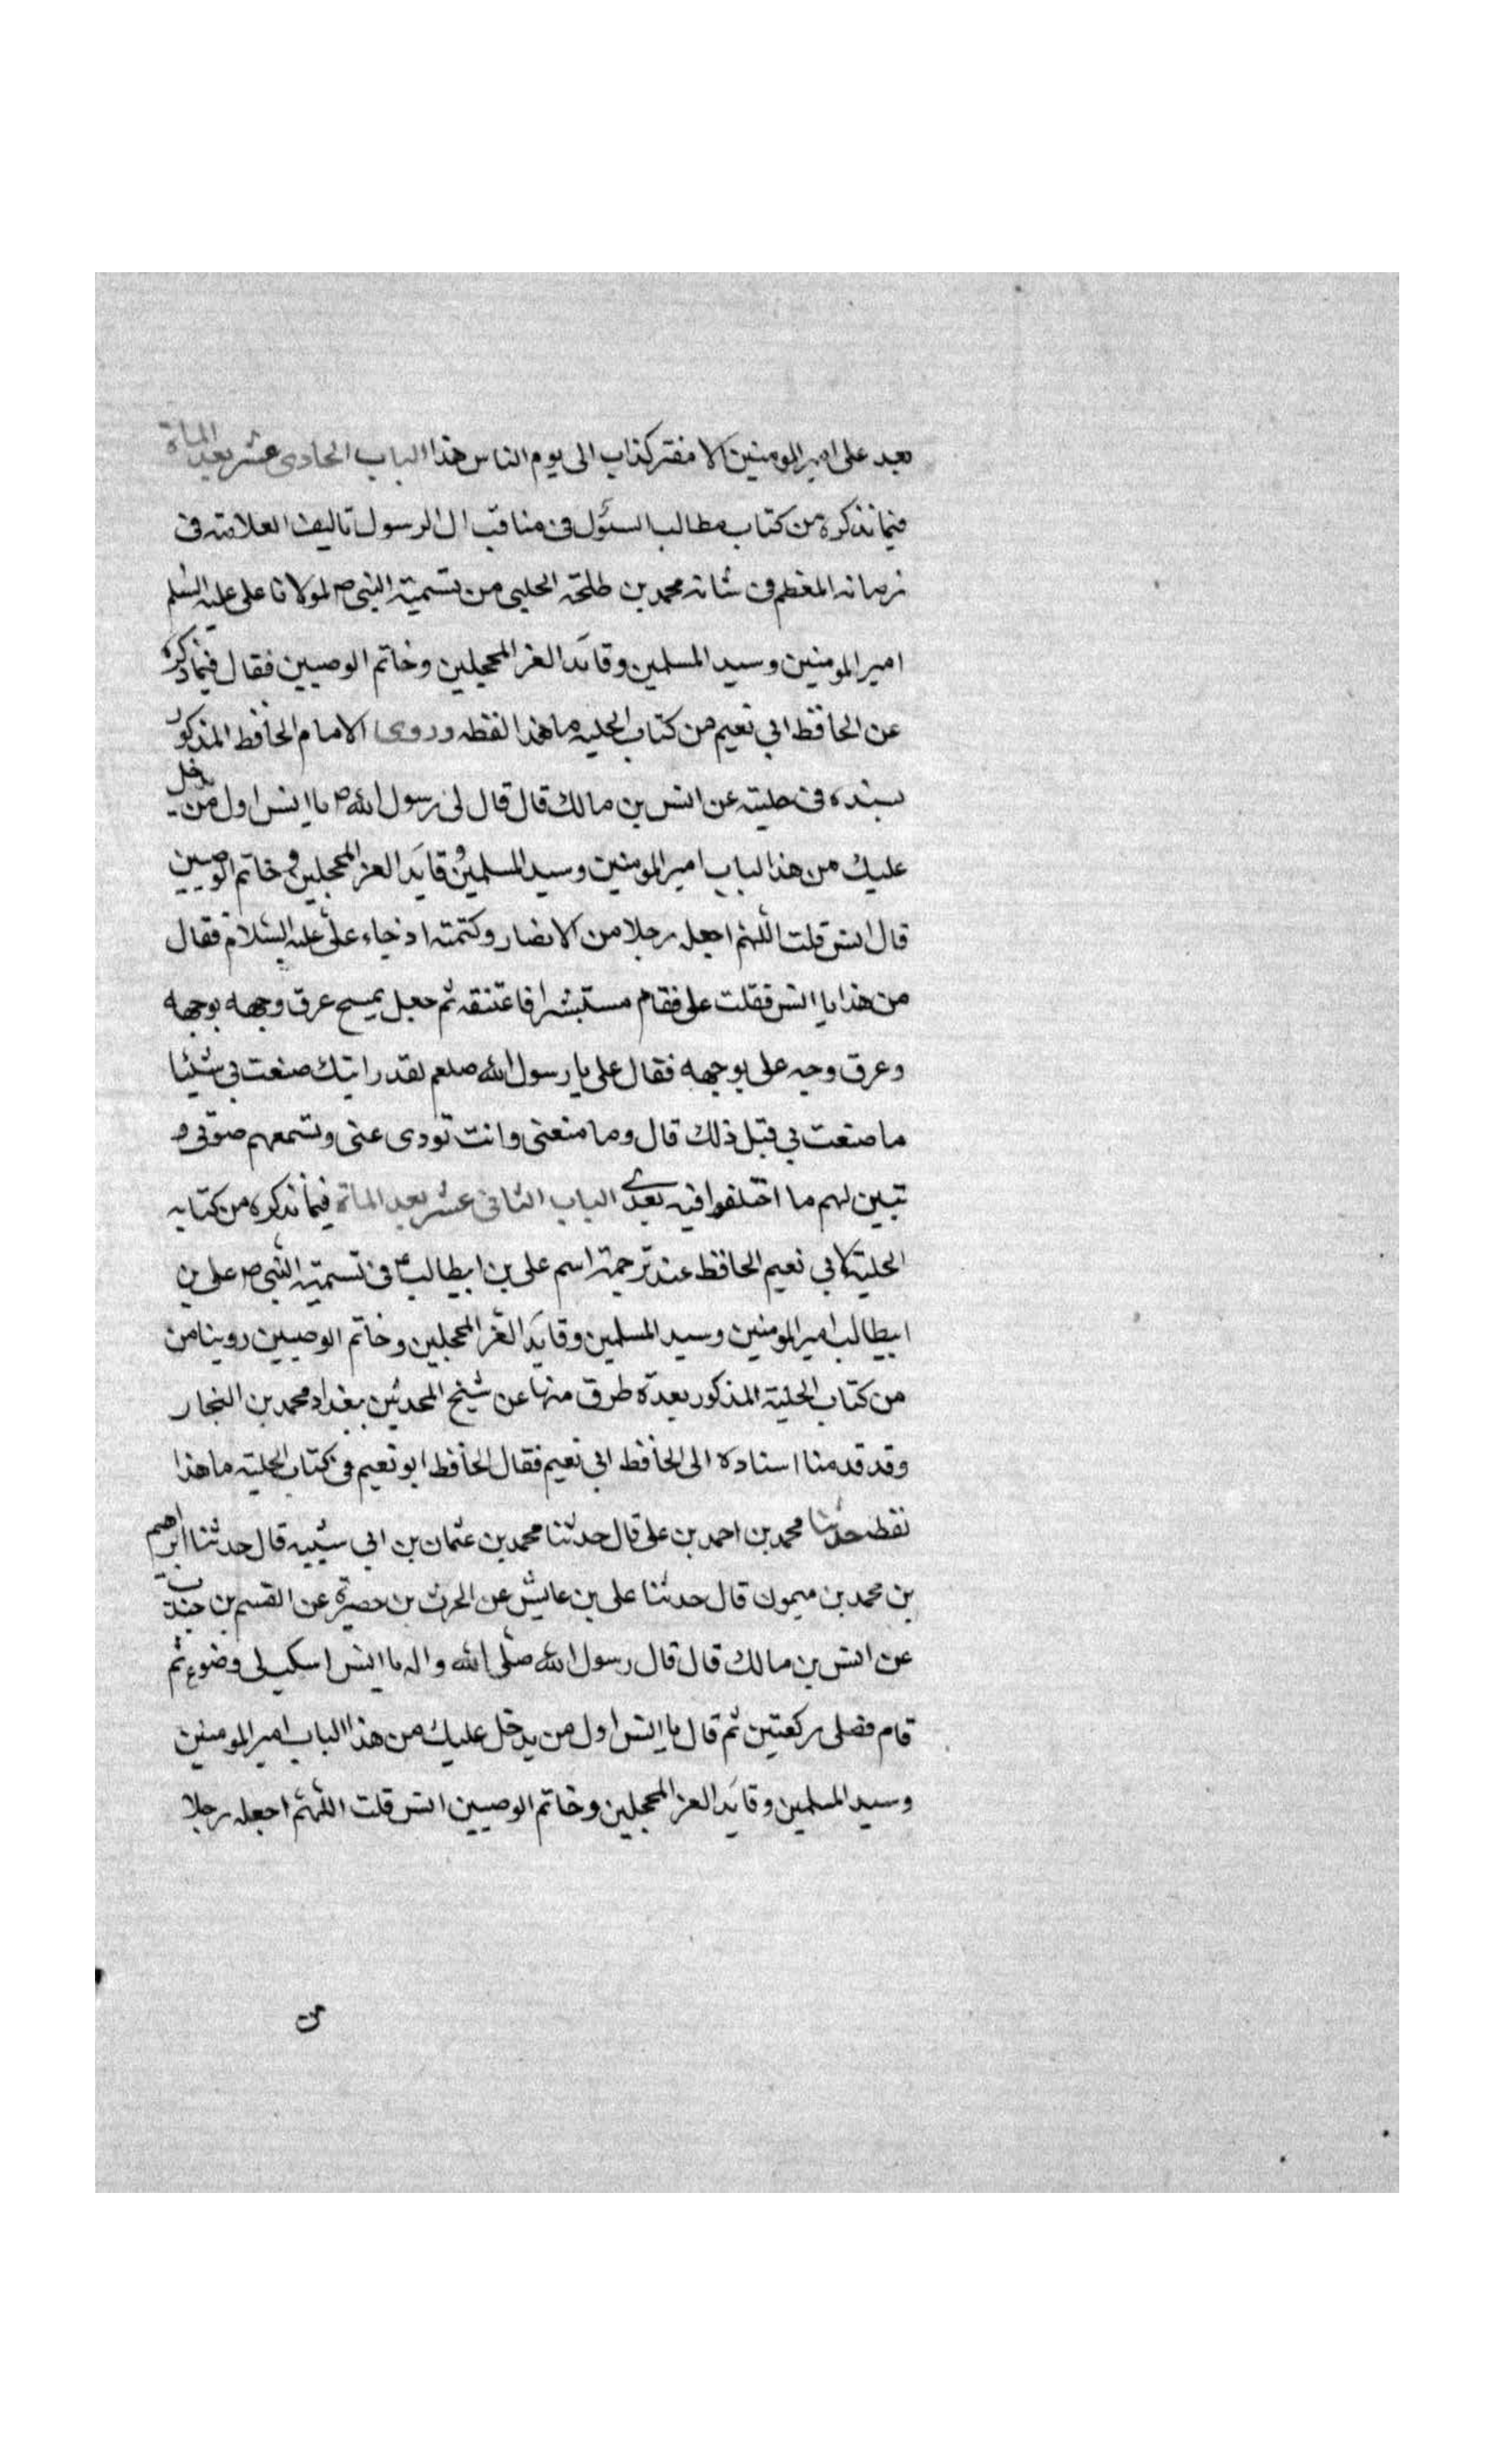 بعد على امير المومنين الا مفتر كذاب الى يوم الناس هذا الباب الحادى عشر بعد الماة
فيما نذكره من كتاب مطالب السئول فى مناقب ال الرسول تاليف العلامة فى
زمانه المعظم فى شانه محمد بن طلحة الحلبى من تسمية النبى ص لمولانا على عليه السلم
امير المومنين وسيد المسلمين وقائد الغر المحجلين وخاتم الوصيين فقال فيما ذكره
عن الحافظ ابي نعيم من كتاب الحليه ما هذا لفظه وروى الامام الحافظ المذكور
بسنده فى حليته عن انس بن مالك قال قال لى رسول الله ص يا انس اول من يدخل
عليك من هذا لباب امير المومنين وسيد المسلمين وقايد الغر المحجلين و خاتم الوصيين
قال انس قلت اللهم اجعله رجلا من الانصار وكتمته اذ جاء على عليه السلام فقال
من هذا يا انس فقلت على فقام مستبشرا فاعتنقه ثم جعل يمسح عرق وجهه بوجهه
وعرق وجه على بوجهه فقال على يا رسول الله صلعم لقد رايتك صنعت بى شيئا
ما صنعت بي قبل ذلك قال وما منعنى وانت تودى عنى وتسمعهم صوتى و
تبين لهم ما اختلفوا فيه بعدى الباب الثانى عشر بعد الماة فيما نذكره من كتابه
الحلية لابي نعيم الحافظ عند ترجمة اسم على بن ابيطالب ع فى تسمية النبى ص على بن
ابيطالب امير المومنين وسيد المسلمين وقايد الغر المحجلين وخاتم الوصيين روينا من
من كتاب الحلية المذكور بعدة طرق منها عن شيخ المحدثين ببغداد محمد بن النجار
وقد قدمنا اسناده الى الحافظ ابى نعيم فقال الحافظ ابو نعيم فى كتاب الحلية ما هذا
لفظه حدثنا محمد بن احمد بن على قال حدثنا محمد بن عثمان بن ابى شيبه قال حدثنا ابرهيم
بن محمد بن ميمون قال حدثنا على بن عايش عن الحرث بن حصيرة عن القسم بن جندب
عن انس بن مالك قال قال رسول الله صلى الله واله يا انس اسكب لى وضوء ثم
قام فصلى ركعتين ثم قال يا انس اول من يدخل عليك من هذا الباب امير المومنين
وسيد المسلمين وقايد الغر المحجلين وخاتم الوصيين انس قلت اللهم اجعله رجلا
من